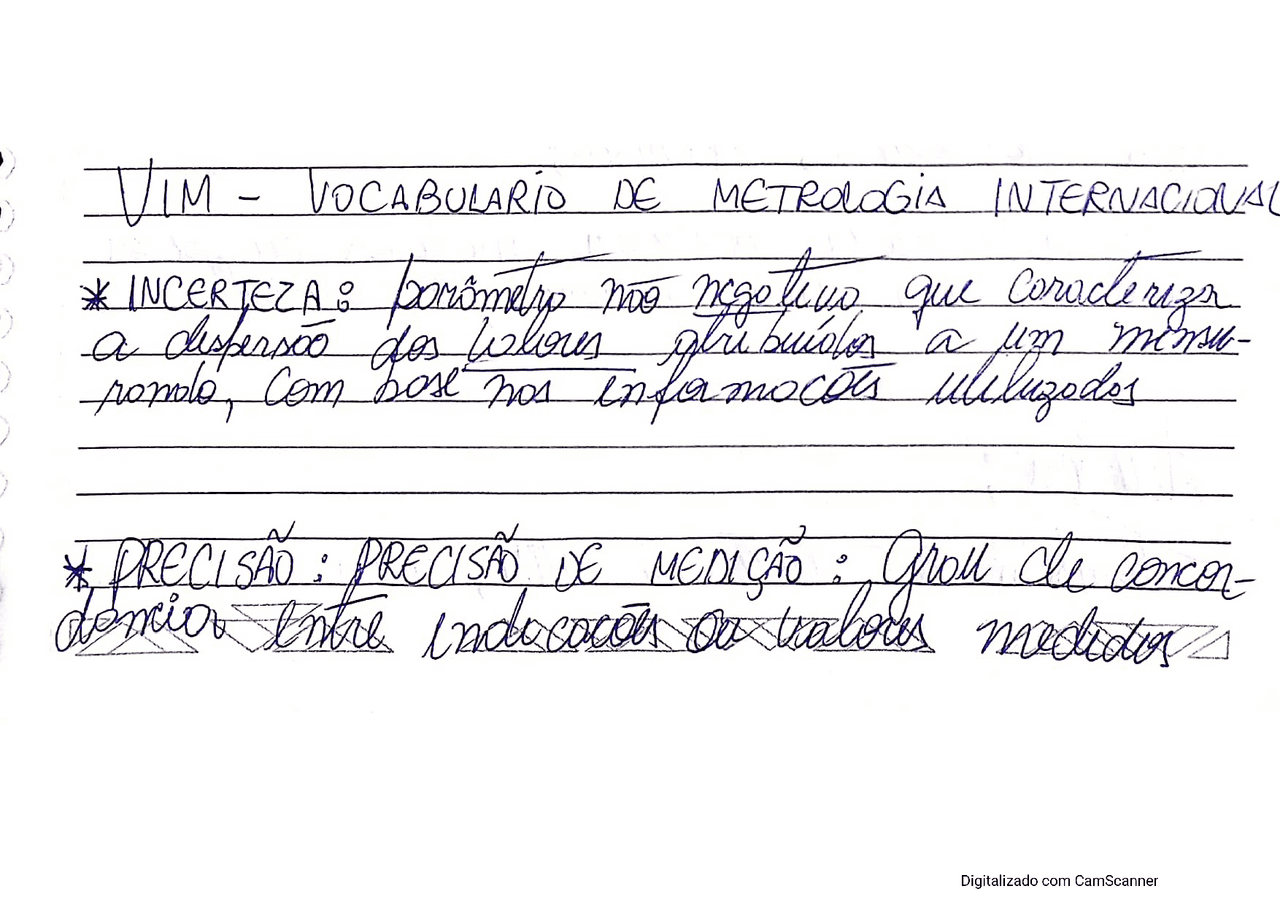 VIM - VOCABULARIO DE METROLOGIA INTERNACIONAL
* INCERTEZA: parâmetro não negativo que caracteriza
a dispersão dos valores atribuídos a um mensu-
rando, com base nas informacões utilizados
* PRECISÃO: PRECISÃO DE MEDIÇÃO: Grau de concor-
dância entre indicacões ou valores medidos
Digitalizado com CamScanner